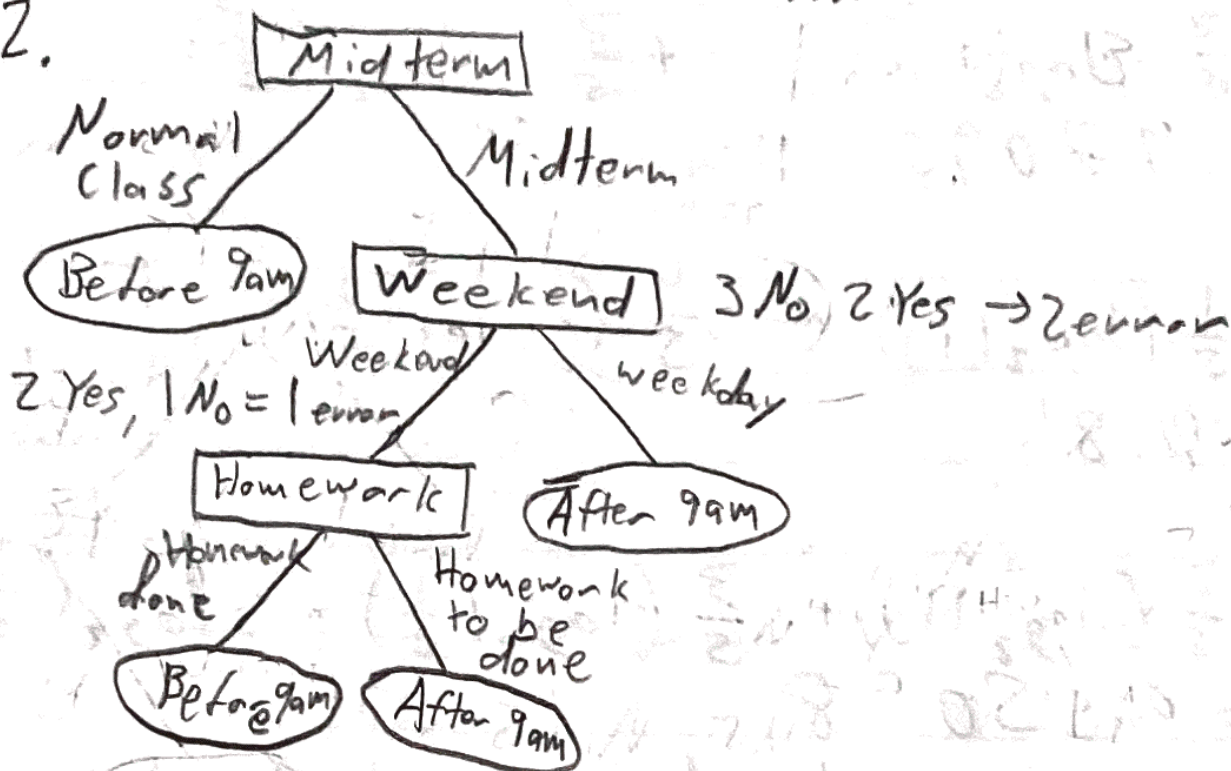 2.
Midterm
Normal
Class
Midterm
Before 9am
Weekend
3 No, 2 Yes → 2 error
Weekend
weekday
2 Yes, 1 No = 1 error
Homework
After 9am
Homework
done
Homework
to be
done
Before 9am
After 9am